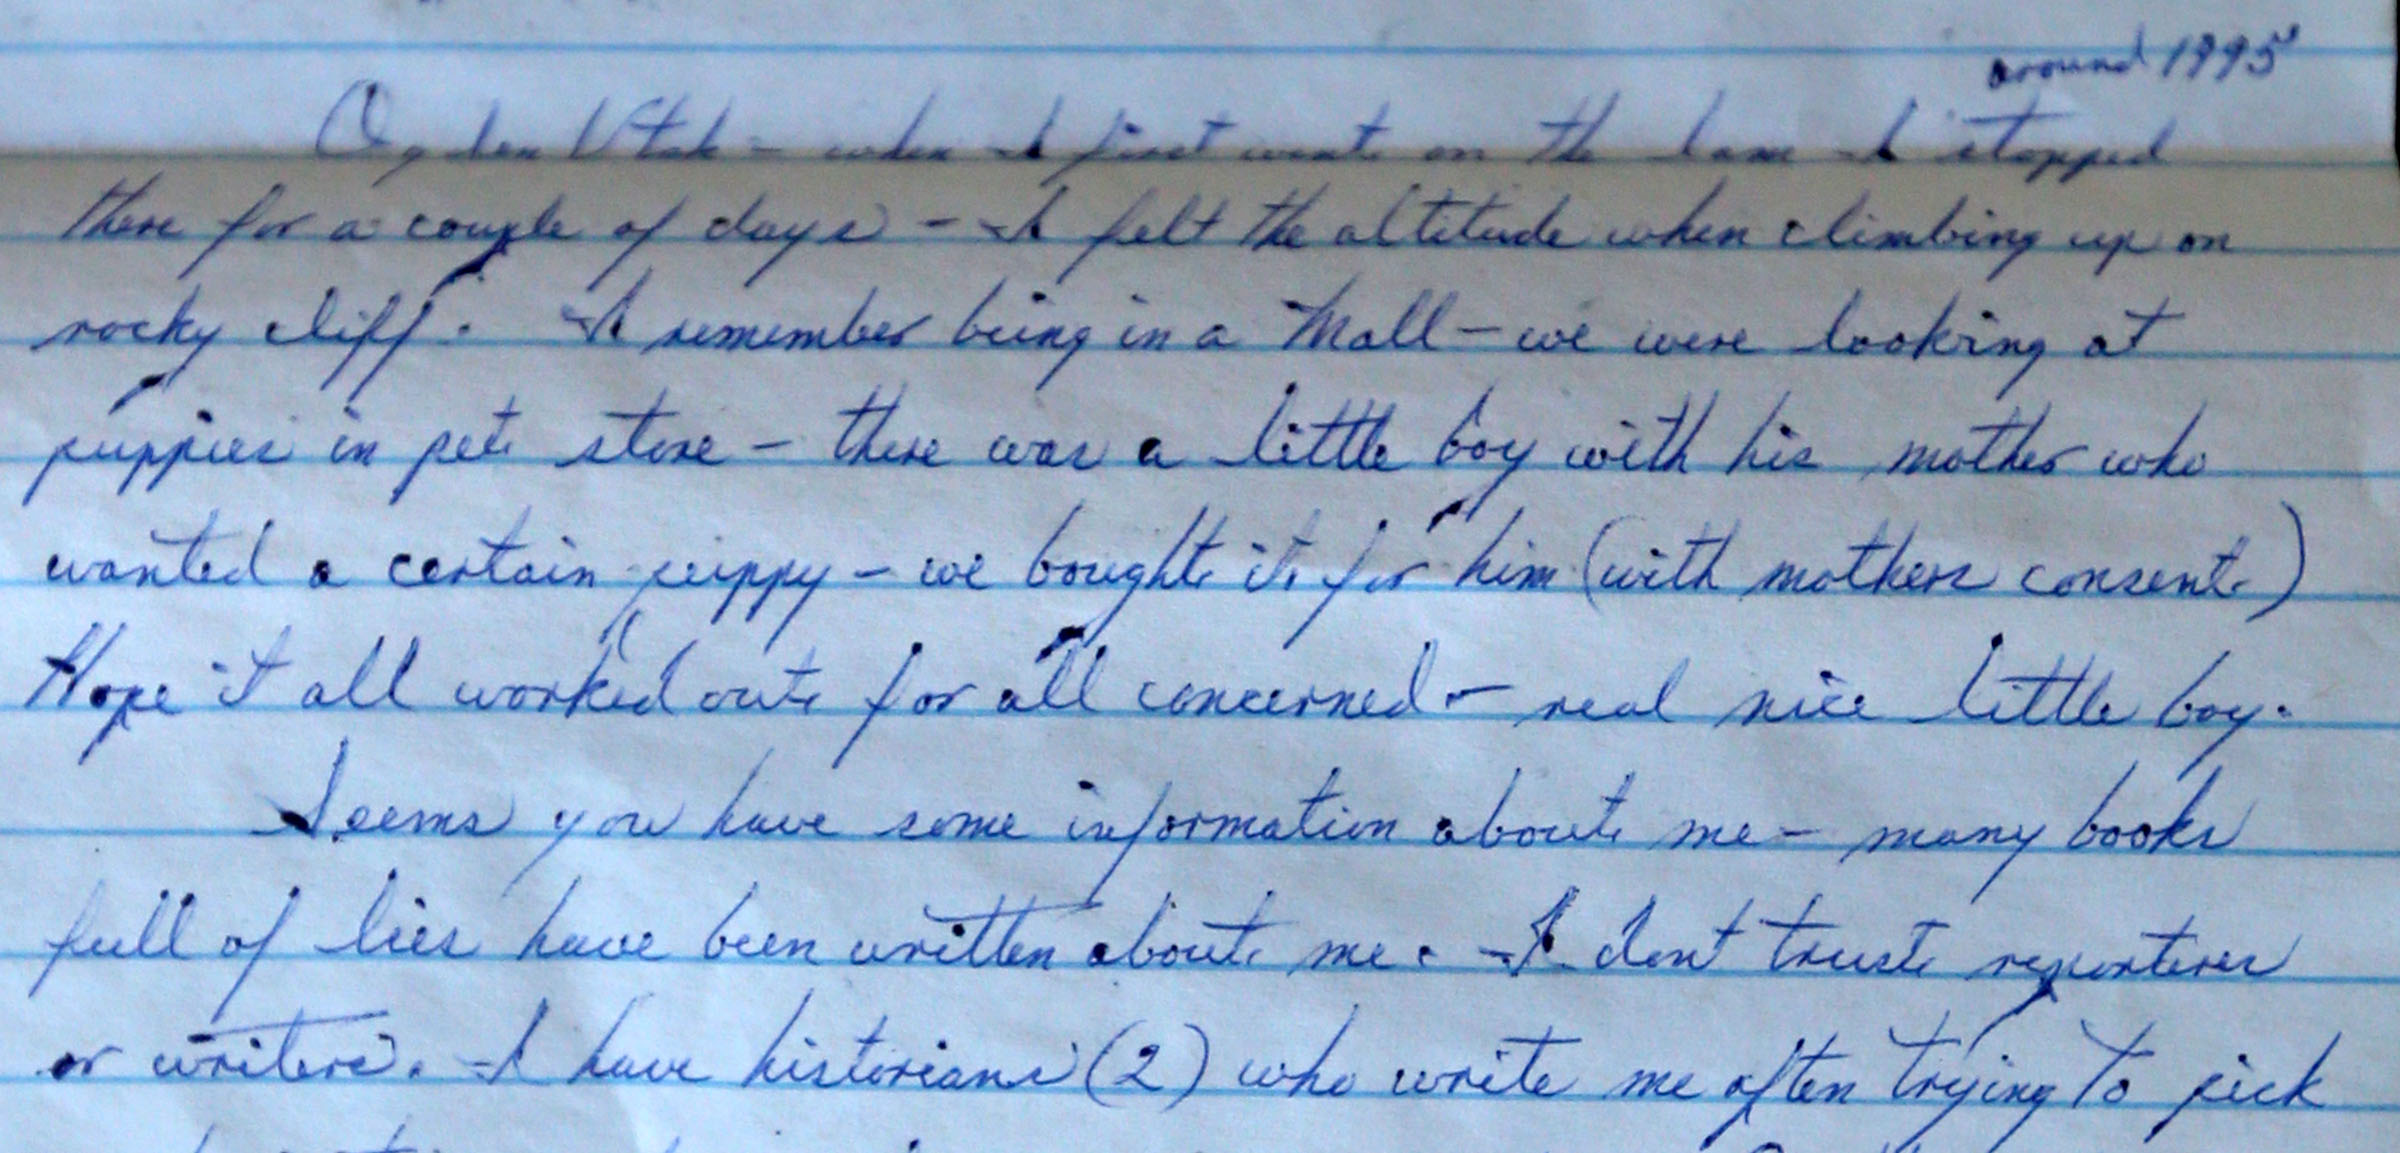 around 1995
Ogden Utah - when I first went on the lam I stopped
there for a couple of days - I felt the altitude when climbing up on
rocky cliff. I remember being in a Mall - we were looking at
puppies in pet store - there was a little boy with his mother who
wanted a certain puppy - we bought it for him (with mothers consent)
Hope it all worked out for all concerned - real nice little boy.
Seems you have some information about me - many books
full of lies have been written about me. I dont trust reporters
or writers. I have historians (2) who write me often trying to pick